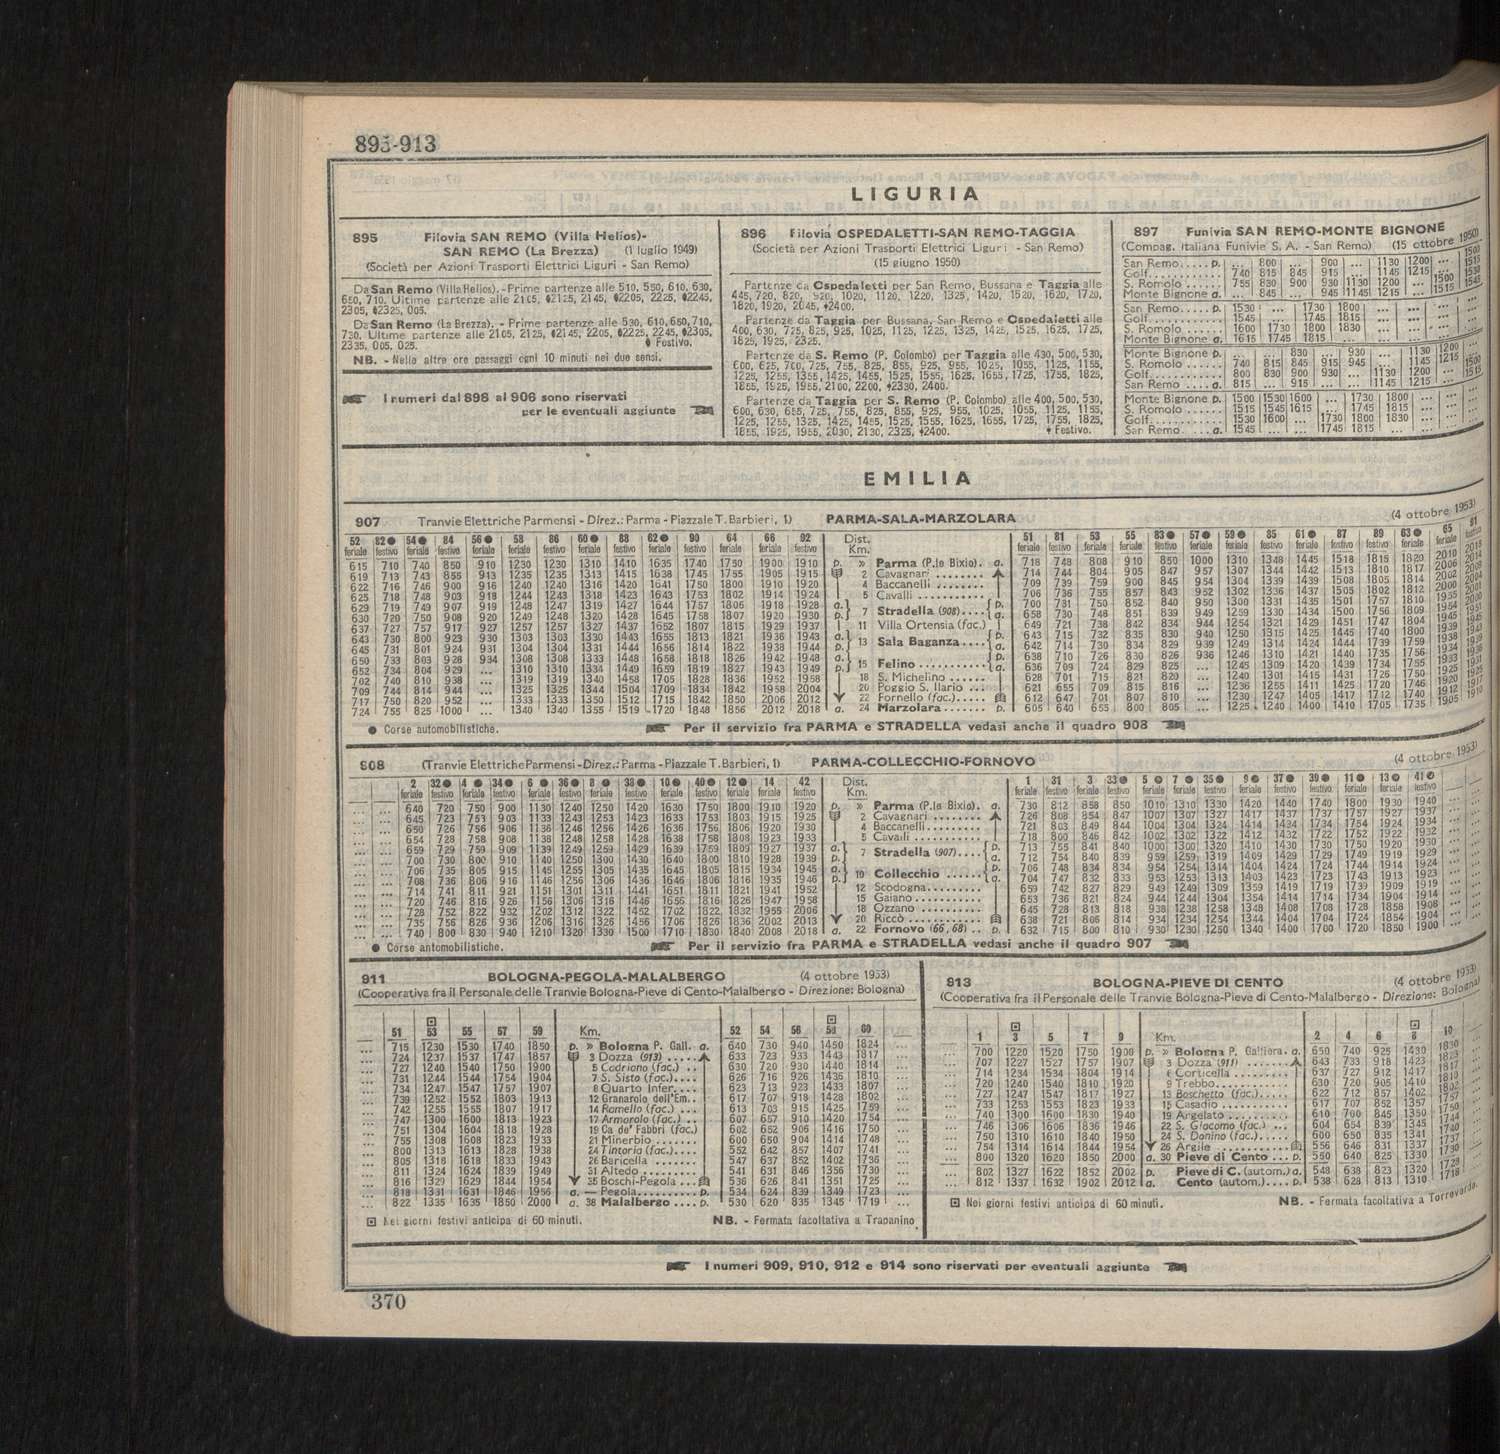 895-913
LIGURIA
895 Filovia SAN REMO (Villa Helios)-
SAN REMO (La Brezza) (1 luglio 1949)
(Società per Azioni Trasporti Elettrici Liguri - San Remo)
Da San Remo (Villa Helios). - Prime partenze alle 510, 550, 610, 630,
650, 710. Ultime partenze alle 2105, ♦2125, 2145, ♦2205, 2225, ♦2245,
2305, ♦2325, 005.
Da San Remo (La Brezza). - Prime partenze alle 530, 610, 650, 710,
730. Ultime partenze alle 2105, 2125, ♦2145, 2205, ♦2225, 2245, ♦2305,
2335, 005, 025. ♦ Festivo.
NB. - Nelle altre ore passaggi ogni 10 minuti nei due sensi.
I numeri dal 898 al 906 sono riservati
per le eventuali aggiunte
896 Filovia OSPEDALETTI-SAN REMO-TAGGIA
(Società per Azioni Trasporti Elettrici Liguri - San Remo)
(15 giugno 1950)
Partenze da Ospedaletti per San Remo, Bussana e Taggia alle
445, 720, 820, 920, 1020, 1120, 1220, 1325, 1420, 1520, 1620, 1720,
1820, 1920, 2045, ♦2400.
Partenze da Taggia per Bussana, San Remo e Ospedaletti alle
400, 630, 725, 825, 925, 1025, 1125, 1225, 1325, 1425, 1525, 1625, 1725,
1825, 1925, 2325.
Partenze da S. Remo (P. Colombo) per Taggia alle 430, 500, 530,
600, 625, 700, 725, 755, 825, 855, 925, 955, 1025, 1055, 1125, 1155,
1225, 1255, 1355, 1425, 1455, 1525, 1555, 1625, 1655, 1725, 1755, 1825,
1855, 1925, 1955, 2100, 2200, ♦2330, 2400.
Partenze da Taggia per S. Remo (P. Colombo) alle 400, 500, 530,
600, 630, 655, 725, 755, 825, 855, 925, 955, 1025, 1055, 1125, 1155,
1225, 1255, 1325, 1425, 1455, 1525, 1555, 1625, 1655, 1725, 1755, 1825,
1855, 1925, 1955, 2030, 2130, 2325, ♦2400. ♦ Festivo.
897 Funivia SAN REMO-MONTE BIGNONE
(Compag. Italiana Funivie S. A. - San Remo) (15 ottobre 1950)
San Remo..... p. ... 800 ... 900 ... 1130 1200 ... 1500 1515
Golf........... 740 815 845 915 ... 1145 1215 ...
S. Romolo...... 755 830 900 930 1130 1200 ...
Monte Bignone a. ... 845 ... 945 1145 1215 ...
San Remo..... p. 1530 ... 1730 1800
Golf........... 1545 ... 1745 1815
S. Romolo...... 1600 1730 1800 1830
Monte Bignone a. 1615 1745 1815 ...
Monte Bignone p. ... ... 830 ... 930 ... 1130 1200
S. Romolo...... 740 815 845 915 945 ... 1145 1215
Golf........... 800 830 900 930 ... 1130 1200 ... 1515
San Remo.... a. 815 ... 915 ... ... 1145 1215 ...
Monte Bignone p. 1500 1530 1600 ... 1730 1800
S. Romolo...... 1515 1545 1615 ... 1745 1815
Golf........... 1530 1600 ... 1730 1800 1830
San Remo..... a. 1545 ... ... 1745 1815 ...
EMILIA
907 Tranvie Elettriche Parmensi - Direz.: Parma - Piazzale T. Barbieri, 1) PARMA-SALA-MARZOLARA (4 ottobre 1953)
52 82● 54● 84 56● 58 86 60● 88 62● 90 64 66 92 Dist. Km. 51 81 53 55 83● 57● 59● 85 61● 87 89 63● 65 91
feriale festivo feriale festivo feriale feriale festivo feriale festivo feriale festivo feriale feriale festivo
615 710 740 850 910 1230 1230 1310 1410 1635 1740 1750 1900 1910 p. » Parma (P.le Bixio). a. 718 748 808 910 850 1000 1310 1348 1445 1518 1815 1820 2010 2018
619 713 743 855 913 1235 1235 1313 1415 1638 1745 1755 1905 1915 2 Cavagnari ........ 714 744 804 905 847 957 1307 1344 1442 1513 1810 1817 2006 2014
622 716 746 900 916 1240 1240 1316 1420 1641 1750 1800 1910 1920 4 Baccanelli ........ 709 739 759 900 845 954 1304 1339 1439 1508 1805 1814 2002
625 718 748 903 918 1244 1243 1318 1423 1643 1753 1802 1914 1924 5 Cavalli .......... 706 736 755 857 843 952 1302 1336 1437 1505 1802 1812 2000
629 719 749 907 919 1248 1247 1319 1427 1644 1757 1806 1918 1928 a. 7 Stradella (908).... p. 700 731 750 852 840 950 1300 1331 1435 1501 1757 1810 1955
630 720 750 908 920 1249 1248 1320 1428 1645 1758 1807 1920 1930 p. a. 658 730 748 851 839 949 1259 1330 1434 1500 1756 1809 1954
637 727 757 917 927 1257 1257 1327 1437 1652 1807 1815 1929 1937 11 Villa Ortensia (fac.) 649 721 738 842 834 944 1254 1321 1429 1451 1747 1804 1945
643 730 800 923 930 1303 1303 1330 1443 1655 1813 1821 1936 1943 a. 13 Sala Baganza.... p. 643 715 732 835 830 940 1250 1315 1425 1445 1740 1800 1939
645 731 801 924 931 1304 1304 1331 1444 1656 1814 1822 1938 1944 p. a. 642 714 730 834 829 939 1249 1314 1424 1444 1739 1759 1938
650 733 803 928 934 1308 1308 1333 1448 1658 1818 1826 1942 1948 a. 15 Felino........... p. 638 710 726 830 826 936 1246 1310 1421 1440 1735 1756 1934
652 734 804 929 ... 1310 1310 1334 1449 1659 1819 1827 1943 1949 p. a. 636 709 724 829 825 ... 1245 1309 1420 1439 1734 1755 1933
702 740 810 938 ... 1319 1319 1340 1458 1705 1828 1836 1952 1958 18 S. Michelino ...... 628 701 715 821 820 ... 1240 1301 1415 1431 1726 1750 1925
709 744 814 944 ... 1325 1325 1344 1504 1709 1834 1842 1958 2004 20 Poggio S. Ilario ... 621 655 709 815 816 ... 1236 1255 1411 1425 1720 1746
717 750 820 952 ... 1333 1333 1350 1512 1715 1842 1850 2006 2012 22 Fornello (fac.)..... 612 647 701 807 810 ... 1230 1247 1405 1417 1712 1740 1912
724 755 825 1000 ... 1340 1340 1355 1519 1720 1848 1856 2012 2018 a. 24 Marzolara ....... p. 605 640 655 800 805 ... 1225 1240 1400 1410 1705 1735 1905 1910
● Corse automobilistiche. Per il servizio fra PARMA e STRADELLA vedasi anche il quadro 908
908 (Tranvie Elettriche Parmensi - Direz.: Parma - Piazzale T. Barbieri, 1) PARMA-COLLECCHIO-FORNOVO (4 ottobre 1953)
2 32● 4● 34● 6● 36● 8● 38● 10● 40● 12● 14 42 Dist. Km. 1 31 3 33● 5● 7● 35● 9● 37● 39● 11● 13● 41●
feriale festivo feriale festivo feriale festivo feriale festivo feriale festivo feriale feriale festivo
640 720 750 900 1130 1240 1250 1420 1630 1750 1800 1910 1920 p. » Parma (P.le Bixio). a. 730 812 858 850 1010 1310 1330 1420 1440 1740 1800 1930 1940
645 723 753 903 1133 1243 1253 1423 1633 1753 1803 1915 1925 2 Cavagnari ........ 726 808 854 847 1007 1307 1327 1417 1437 1737 1757 1927 1937
650 726 756 906 1136 1246 1256 1426 1636 1756 1806 1920 1930 4 Baccanelli......... 721 803 849 844 1004 1304 1324 1414 1434 1734 1754 1924 1934
654 728 758 908 1138 1248 1258 1428 1638 1758 1808 1923 1933 5 Cavalli ........... 718 800 846 842 1002 1302 1322 1412 1432 1732 1752 1922 1932
659 729 759 909 1139 1249 1259 1429 1639 1759 1809 1927 1937 a. 7 Stradella (907).... p. 713 755 841 840 1000 1300 1320 1410 1430 1730 1750 1920 1930
700 730 800 910 1140 1250 1300 1430 1640 1800 1810 1928 1939 p. a. 712 754 840 839 959 1259 1319 1409 1429 1729 1749 1919 1929
706 735 805 915 1145 1255 1305 1435 1645 1805 1815 1934 1945 a. 10 Collecchio ...... p. 706 748 834 834 954 1254 1314 1404 1424 1724 1744 1914 1924
708 736 806 916 1146 1256 1306 1436 1646 1806 1816 1935 1946 p. a. 704 747 832 833 953 1253 1313 1403 1423 1723 1743 1913 1923
714 741 811 921 1151 1301 1311 1441 1651 1811 1821 1941 1952 12 Scodogna......... 659 742 827 829 949 1249 1309 1359 1419 1719 1739 1909 1919
720 746 816 926 1156 1306 1316 1446 1656 1816 1826 1947 1958 15 Gaiano........... 653 736 821 824 944 1244 1304 1354 1414 1714 1734 1904 1914
728 752 822 932 1202 1312 1322 1452 1702 1822 1832 1955 2006 18 Ozzano .......... 645 728 813 818 938 1238 1258 1348 1408 1708 1728 1858 1908
735 756 826 936 1206 1316 1326 1456 1706 1826 1836 2002 2013 20 Riccò ............ 638 721 806 814 934 1234 1254 1344 1404 1704 1724 1854 1904
740 800 830 940 1210 1320 1330 1500 1710 1830 1840 2008 2018 a. 22 Fornovo (66, 68) .. p. 632 715 800 810 930 1230 1250 1340 1400 1700 1720 1850 1900
● Corse antomobilistiche. Per il servizio fra PARMA e STRADELLA vedasi anche il quadro 907
911 BOLOGNA-PEGOLA-MALALBERGO (4 ottobre 1953)
(Cooperativa fra il Personale delle Tranvie Bologna-Pieve di Cento-Malalbergo - Direzione: Bologna)
51 ⊡53 55 57 59 Km. 52 54 56 ⊡58 60
715 1230 1530 1740 1850 p. » Bologna P. Gall. a. 640 730 940 1450 1824
724 1237 1537 1747 1857 3 Dozza (913) ..... 633 723 933 1443 1817
727 1240 1540 1750 1900 5 Cadriano (fac.) .. 630 720 930 1440 1814
731 1244 1544 1754 1904 7 S. Sisto (fac.).... 626 716 926 1436 1810
734 1247 1547 1757 1907 8 Quarto Infer.... 623 713 923 1433 1807
739 1252 1552 1803 1913 12 Granarolo dell'Em.. 617 707 918 1428 1802
742 1255 1555 1807 1917 14 Ramello (fac.) ... 613 703 915 1425 1759
747 1300 1600 1813 1923 17 Armarolo (fac.) .. 607 657 910 1420 1754
751 1304 1604 1818 1928 19 Ca de' Fabbri (fac.) 602 652 906 1416 1750
755 1308 1608 1823 1933 21 Minerbio ....... 600 650 904 1414 1748
800 1313 1613 1828 1938 24 Tintoria (fac.).... 552 642 857 1407 1741
805 1318 1618 1833 1943 26 Baricella ....... 547 637 852 1402 1736
811 1324 1624 1839 1949 31 Altedo ......... 541 631 846 1356 1730
816 1329 1629 1844 1954 35 Boschi-Pegola ... 536 626 841 1351 1725
818 1331 1631 1846 1956 a. — Pegola.......... p. 534 624 839 1349 1723
822 1335 1635 1850 2000 a. 38 Malalbergo .... p. 530 620 835 1345 1719
⊡ Nei giorni festivi anticipa di 60 minuti. NB. - Fermata facoltativa a Trapanino
913 BOLOGNA-PIEVE DI CENTO (4 ottobre 1953)
(Cooperativa fra il Personale delle Tranvie Bologna-Pieve di Cento-Malalbergo - Direzione: Bologna)
1 ⊡3 5 7 9 Km. 2 4 6 ⊡8 10
700 1220 1520 1750 1900 p. » Bologna P. Galliera. a. 650 740 925 1430 1830
707 1227 1527 1757 1907 3 Dozza (911) ....... 643 733 918 1423 1823
714 1234 1534 1804 1914 6 Corticella ......... 637 727 912 1417
720 1240 1540 1810 1920 9 Trebbo........... 630 720 905 1410 1810
727 1247 1547 1817 1927 13 Boschetto (fac.)..... 622 712 857 1402 1802
733 1253 1553 1823 1933 15 Casadio .......... 617 707 852 1357 1757
740 1300 1600 1830 1940 19 Argelato .......... 610 700 845 1350 1750
746 1306 1606 1836 1946 22 S. Giacomo (fac.) ... 604 654 839 1345 1744
750 1310 1610 1840 1950 24 S. Donino (fac.)..... 600 650 835 1341 1740
754 1314 1614 1844 1954 26 Argile ........... 556 646 831 1337 1736
800 1320 1620 1850 2000 a. 30 Pieve di Cento ... p. 550 640 825 1330
802 1327 1622 1852 2002 p. Pieve di C. (autom.) a. 548 638 823 1320 1728
812 1337 1632 1902 2012 a. Cento (autom.).... p. 538 628 813 1310 1718
⊡ Nei giorni festivi anticipa di 60 minuti. NB. - Fermata facoltativa a Torreverde.
I numeri 909, 910, 912 e 914 sono riservati per eventuali aggiunte
370